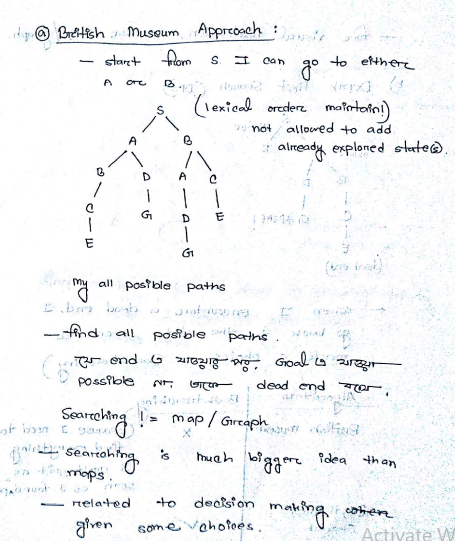 ⓐ British Museum Approach :
— start from S. I can go to either
A or B.
(lexical order maintain!)
not allowed to add
already explored state(s).
S
A B
B D A C
C G D E
E G
my all posible paths
— find all posible paths.
যে end এ যাওয়ার পর, Goal এ যাওয়া
possible না, তাকে dead end বলে,
Searching != map / Graph
— searching is much bigger idea than
maps.
— related to decision making when
given some choices.
Activate W